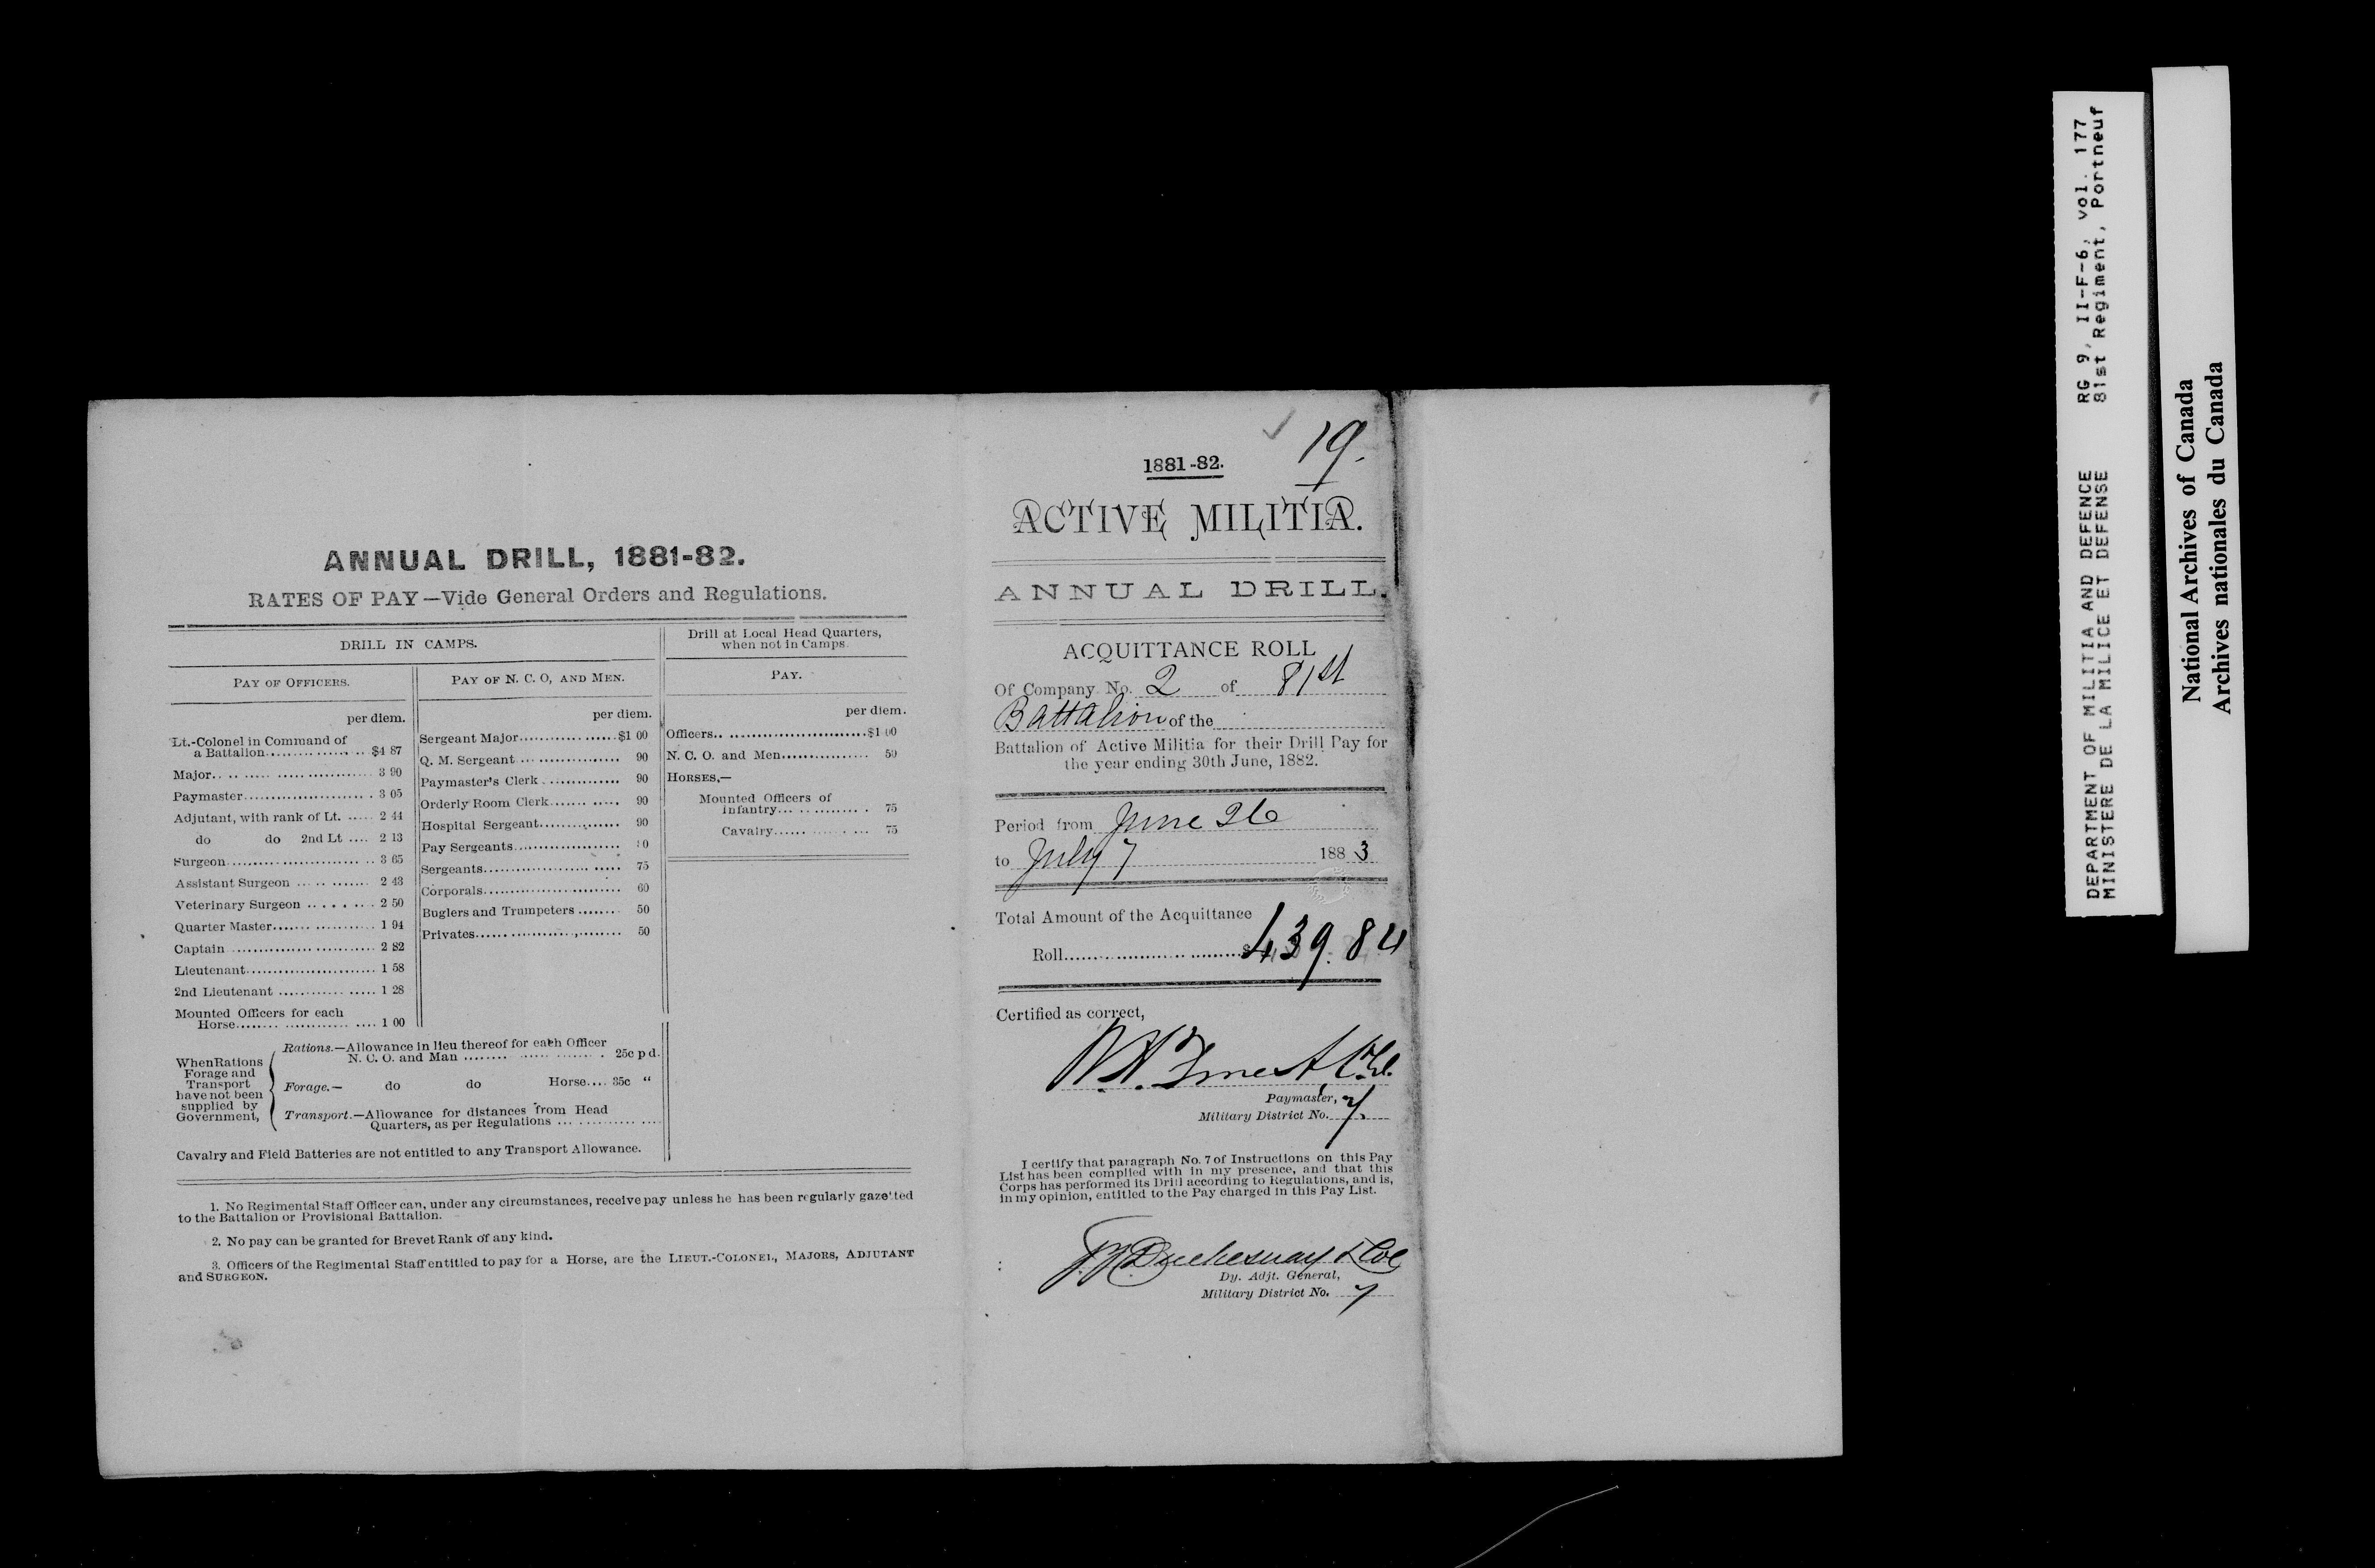 ANNUAL DRILL, 1881-82.
RATES OF PAY—Vide General Orders and Regulations.
DRILL IN CAMPS.
PAY OF OFFICERS.
per diem.
Lt.-Colonel in Command of
a Battalion.................. $4 87
Major.................. 3 90
Paymaster.................. 3 05
Adjutant, with rank of Lt. ..... 2 44
do do 2nd Lt .... 2 13
Surgeon.................. 3 65
Assistant Surgeon .................. 2 43
Veterinary Surgeon .................. 2 50
Quarter Master.................. 1 94
Captain .................. 2 82
Lieutenant.................. 1 58
2nd Lieutenant .................. 1 28
Mounted Officers for each
Horse.................. 1 00
PAY OF N. C. O, AND MEN.
per diem.
Sergeant Major.................. $1 00
Q. M. Sergeant .................. 90
Paymaster's Clerk .................. 90
Orderly Room Clerk.................. 90
Hospital Sergeant.................. 90
Pay Sergeants..................
Sergeants.................. 75
Corporals.................. 60
Buglers and Trumpeters ....... 50
Privates.................. 50
Drill at Local Head Quarters,
when not in Camps.
PAY.
per diem.
Officers.................. $1 00
N. C. O. and Men.................. 50
HORSES,—
Mounted Officers of
Infantry.................. 75
Cavalry.................. 75
When Rations
Forage and
Transport
have not been
supplied by
Government,
Rations.—Allowance in lieu thereof for each Officer
N. C. O. and Man .................. 25c p d.
Forage.— do do Horse.... 35c “
Transport.—Allowance for distances from Head
Quarters, as per Regulations ..................
Cavalry and Field Batteries are not entitled to any Transport Allowance.
1. No Regimental Staff Officer can, under any circumstances, receive pay unless he has been regularly gazetted
to the Battalion or Provisional Battalion.
2. No pay can be granted for Brevet Rank of any kind.
3. Officers of the Regimental Staff entitled to pay for a Horse, are the LIEUT.-COLONEL, MAJORS, ADJUTANT
and SURGEON.
19.
1881-82.
ACTIVE MILITIA.
ANNUAL DRILL.
ACQUITTANCE ROLL
Of Company No. 2 of 81st
Battalion of the
Battalion of Active Militia for their Drill Pay for
the year ending 30th June, 1882.
Period from June 26
to July 7 1883
Total Amount of the Acquittance
Roll.................. 439.84
Certified as correct,
Paymaster,
Military District No. 7.
I certify that paragraph No. 7 of Instructions on this Pay
List has been complied with in my presence, and that this
Corps has performed its Drill according to Regulations, and is,
in my opinion, entitled to the Pay charged in this Pay List.
Duchesnay Lt Col
Dy. Adjt. General,
Military District No. 7
DEPARTMENT OF MILITIA AND DEFENCE RG 9, II-F-6, vol. 177
MINISTERE DE LA MILICE ET DEFENSE 81st Regiment, Portneuf
National Archives of Canada
Archives nationales du Canada